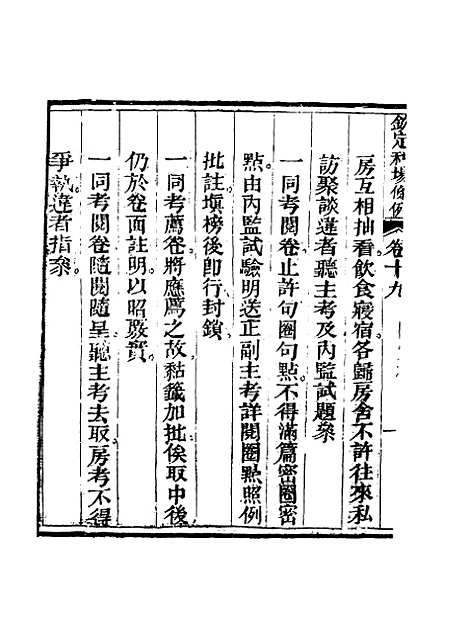 欽定科場條例 卷十九
房互相抽看飲食寢宿各歸房舍不許往來私
訪聚談違者聽主考及內監試題叅
一同考閱卷止許句圈句點不得滿篇密圈密
點由內監試驗明送正副主考詳閱圈點照例
批註塡榜後卽行封鎖
一同考薦卷將應薦之故黏籤加批俟取中後
仍於卷面註明以昭覈實
一同考閱卷隨閱隨呈聽主考去取房考不得
爭執違者指叅